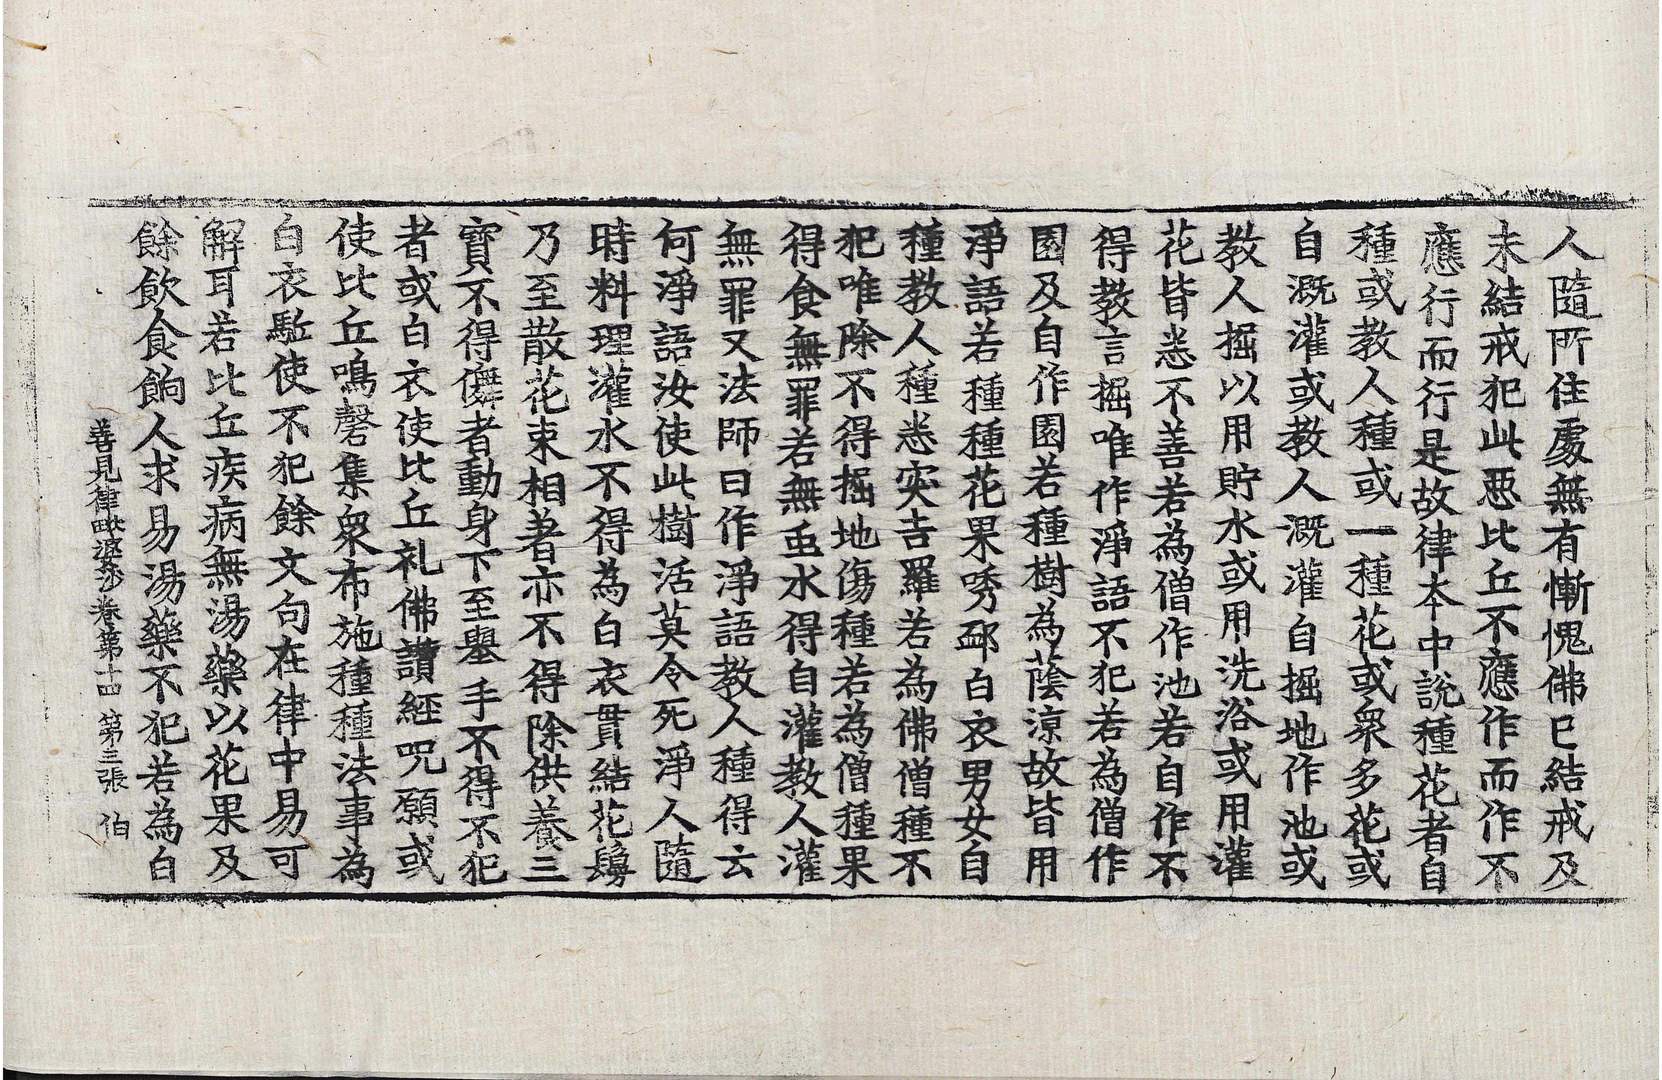 人隨所住處無有慚愧佛已結戒及
未結戒犯此惡比丘不應作而作不
應行而行是故律本中說種花者自
種或教人種或一種花或衆多花或
自溉灌或教人溉灌自掘地作池或
教人掘以用貯水或用洗浴或用灌
花皆悉不善若為僧作池若自作不
得教言掘唯作淨語不犯若為僧作
園及自作園若種樹為蔭涼故皆用
淨語若種種花果唀郅白衣男女自
種教人種悉突吉羅若為佛僧種不
犯唯除不得掘地傷種若為僧種果
得食無罪若無虫水得自灌教人灌
無罪又法師曰作淨語教人種得云
何淨語汝使此樹活莫令死淨人隨
時料理灌水不得為白衣貫結花鬘
乃至散花束相著亦不得除供養三
寶不得儛者動身下至舉手不得不犯
者或白衣使比丘礼佛讚經咒願或
使比丘鳴磬集衆布施種種法事為
白衣駈使不犯餘文句在律中易可
解耳若比丘疾病無湯藥以花果及
餘飲食餉人求易湯藥不犯若為白
善見律毗婆沙卷第十四 第三張 伯